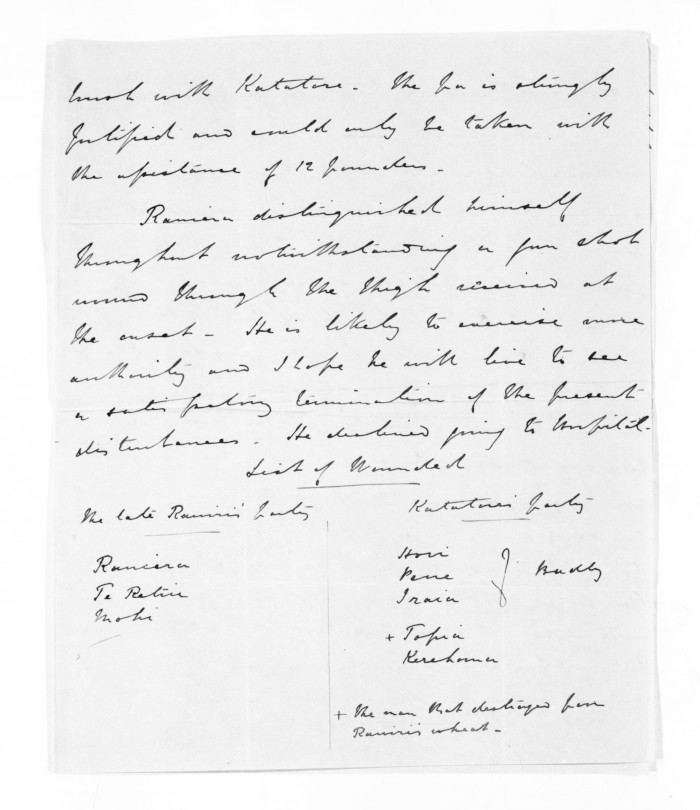 much with Katatore. The pa is strongly
fortified and could only be taken with
the assistance of 12 pounders.
Raniera distinguished himself
throughout notwithstanding a gun shot
wound through the thigh received at
the onset - He is likely to exercise more
authority and I hope he will live to see
a satisfactory termination of the present
disturbances. He declined going to Hospital.
List of Wounded
The late Rawiri's party
Katatore's party
Raniera
Te Retiu
Mohi
Hori
Pene
Iraia
} Badly
+ Topia
Kerehoma
+ The man that destroyed poor
Rawiri's wheat -